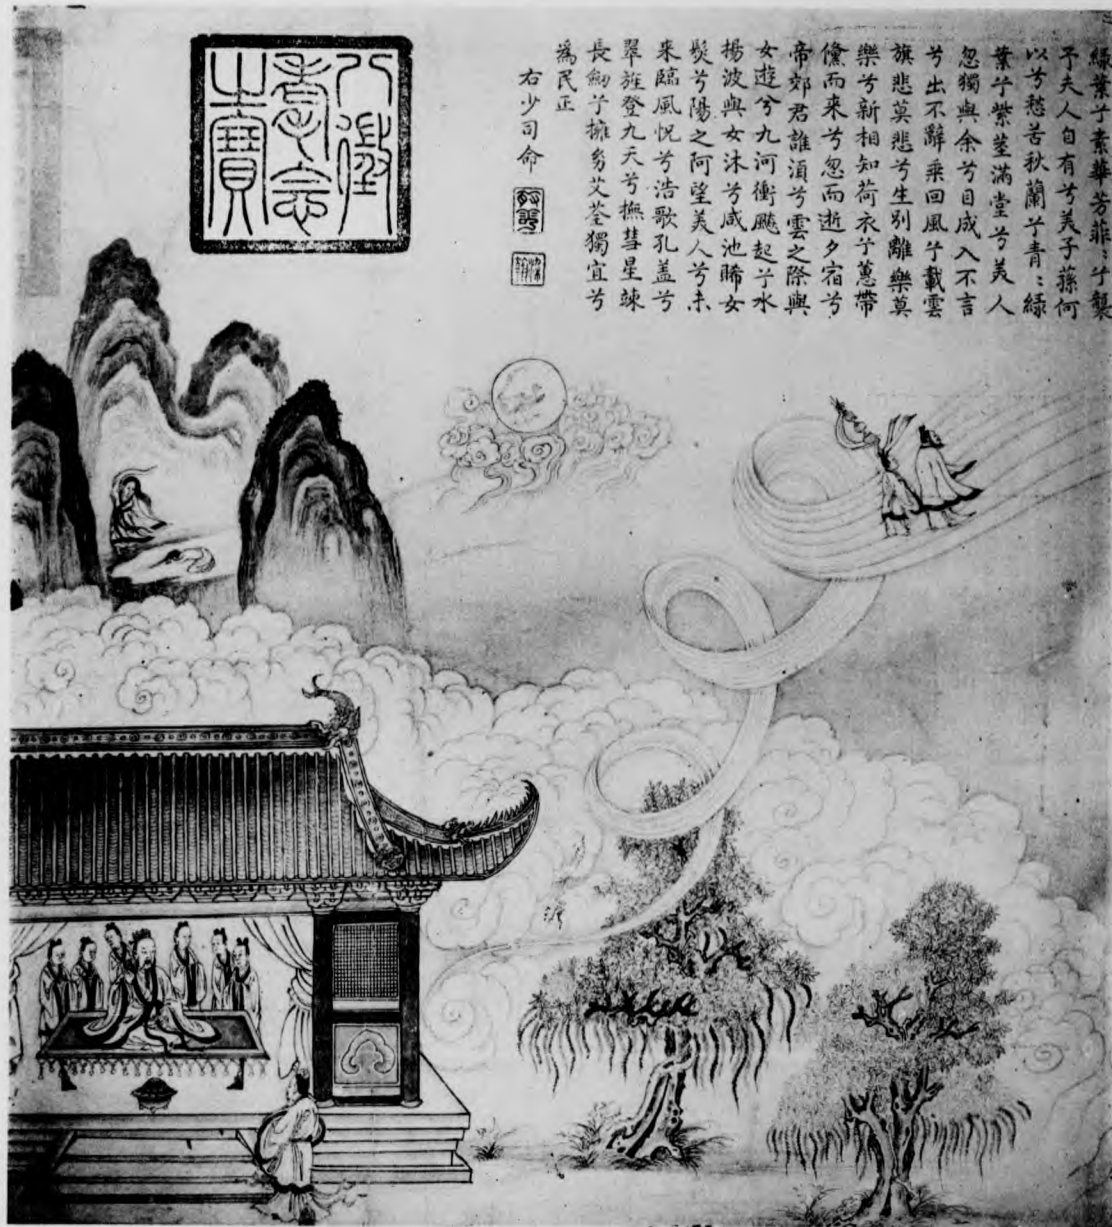 綠葉兮素華芳菲〻兮襲
予夫人自有兮美子蓀何
以兮愁苦秋蘭兮青〻綠
葉兮紫莖滿堂兮美人
忽獨與余兮目成入不言
兮出不辭乘回風兮載雲
旗悲莫悲兮生別離樂莫
樂兮新相知荷衣兮蕙帶
儵而來兮忽而逝夕宿兮
帝郊君誰須兮雲之際與
女遊兮九河衝飈起兮水
揚波與女沐兮咸池晞女
髮兮陽之阿望美人兮未
來臨風怳兮浩歌孔盖兮
翠旌登九天兮撫彗星竦
長劒兮擁㓜艾荃獨宜兮
為民正
右少司命
八徵耄念之寶